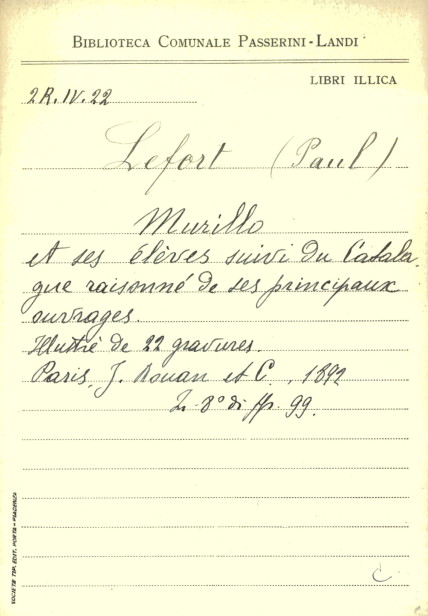 BIBLIOTECA COMUNALE PASSERINI-LANDI
LIBRI ILLICA
2R.IV.22
Lefort (Paul)
Murillo
et ses élèves suivi du Catala-
gue raisonné de ses principaux
ouvrages.
Illustré de 22 gravures.
Paris, J. Rouan et C., 1892
In 8° di pp. 99.
C